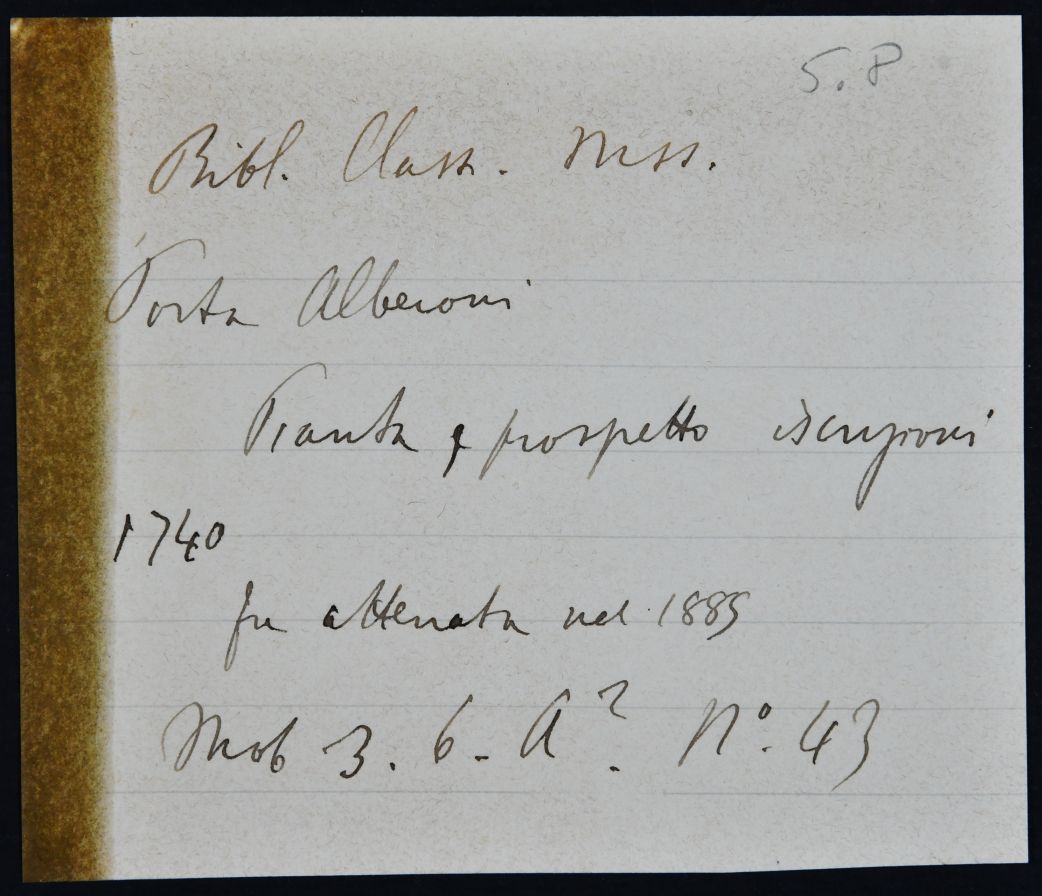 5.8
Bibl. Class. Mss.
Porta Alberoni
Pianta e prospetto iscrizioni
1740
fu atterrata nel 1885
Mob 3. 6 - A². Nº. 43